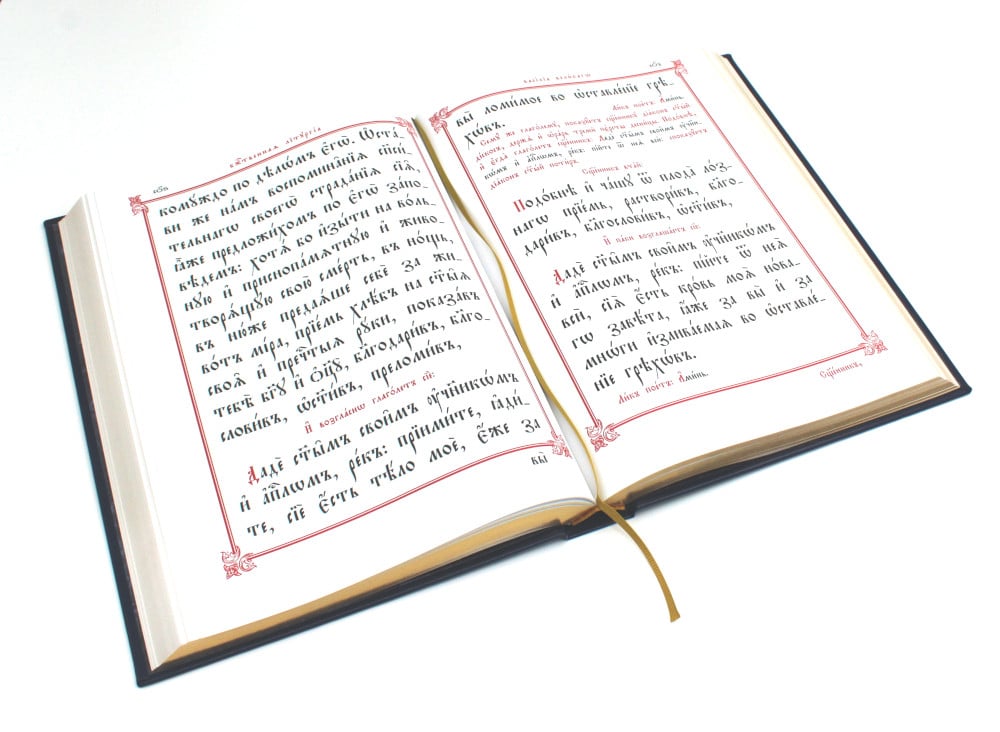 бж҃твеннаѧ лїтꙋргі́а
комꙋ́ждо по дѣлѡ́мъ є҆гѡ̀. Ѡ҆ста́-
ви же на́мъ воспомина̑нїѧ сп҃си́-
тельнагѡ своегѡ̀ страда́нїѧ сїѧ̑,
ꙗ҆̀же предложи́хомъ по є҆гѡ̀ за́по-
вѣдемъ: хотѧ́ бо и҆зы́ти на во́ль-
нꙋю и҆ приснопа́мѧтнꙋю и҆ живо-
творѧ́щꙋю свою̀ сме́рть, въ но́щь,
въ ню́же предаѧ́ше себѐ за жи-
во́тъ мі́ра, прїе́мь хлѣ́бъ на ст҃ы̑ѧ
своѧ̑ и҆ пречⷭ҇тыѧ рꙋ́ки, показа́въ
тебѣ̀ бг҃ꙋ и҆ ѻ҆ц҃ꙋ̀, бл҃годари́въ, бл҃го-
слови́въ, ѡ҆ст҃и́въ, преломи́въ,
И҆ возгла́снѡ глаго́летъ сїѐ:
Дадѐ ст҃ы̑мъ свои̑мъ ᲂу҆чн҃кѡ́мъ
и҆ а҆пⷭ҇лѡмъ, ре́къ: прїими́те, ꙗ҆ди́-
те, сїѐ є҆́сть тѣ́ло моѐ, є҆́же за
вы̀
васі́лїа вели́кагѡ
вы̀ ломи́мое во ѡ҆ставле́нїе грѣ-
хѡ́въ.
Ли́къ пое́тъ: А҆ми́нь.
Сщ҃е́нникъ ѻ҆тай:
Подо́бнѣ и҆ ча́шꙋ ѿ плода̀ ло́з-
нагѡ прїе́мь, раствори́въ, бл҃го-
дари́въ, бл҃гослови́въ, ѡ҆ст҃и́въ,
И҆ па́ки возглаша́етъ сїѐ:
Дадѐ ст҃ы̑мъ свои̑мъ ᲂу҆чн҃кѡ́мъ
и҆ а҆пⷭ҇лѡмъ, ре́къ: пі́йте ѿ неѧ̀
всѝ, сїѧ̀ є҆́сть кро́вь моѧ̀ но́ва-
гѡ завѣ́та, ꙗ҆́же за вы̀ и҆ за
мнѡ́ги и҆злива́емаѧ во ѡ҆ставле́-
нїе грѣхѡ́въ.
Ли́къ пое́тъ: А҆ми́нь.
Сщ҃е́нникъ,